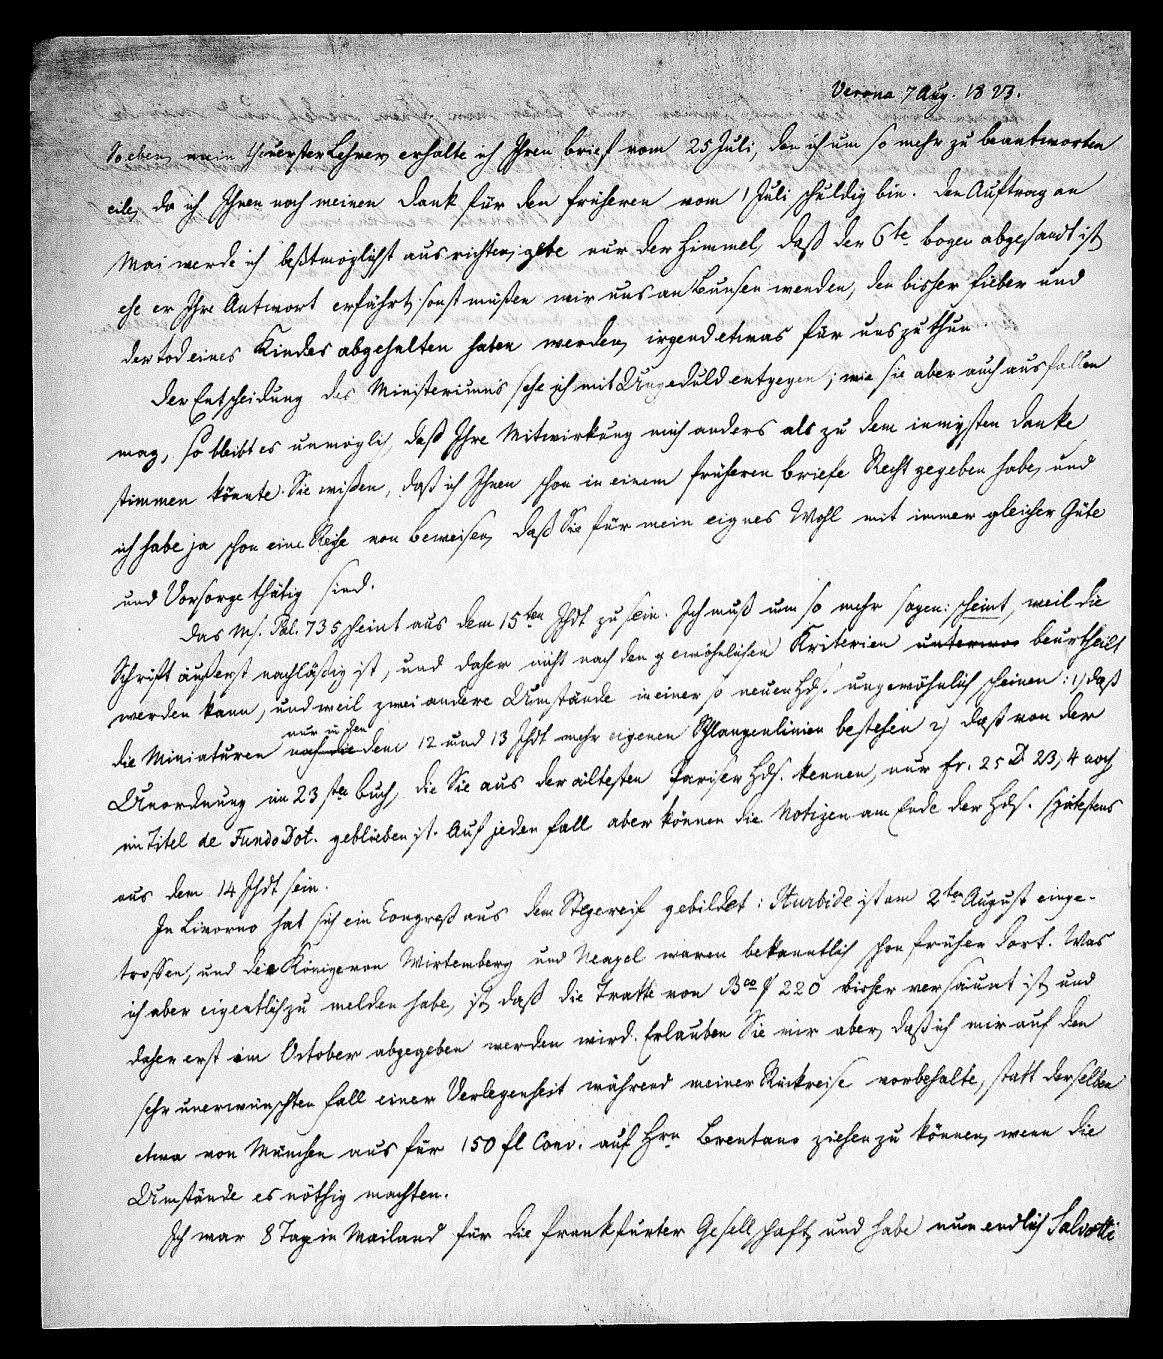 Verona 7 Aug. 1823.
So eben, mein theuerster Lehrer, erhalte ich Ihren Brief vom 25 Juli, den ich um so mehr zu beantworten
eile, da ich Ihnen noch meinen Dank für den früheren vom 1 Juli schuldig bin. Den Auftrag an
Mai werde ich beßtmöglichst ausrichten, gebe nur der Himmel, daß der 6te Bogen abgesandt ist,
ehe er Ihre Antwort erfährt, sonst müßen wir uns an Bunsen wenden, den bisher Fieber und
der Tod eines Kindes abgehalten haben werden, irgend etwas für uns zu thun.
Der Entscheidung des Ministeriums sehe ich mit Ungeduld entgegen; wie sie aber auch ausfallen
mag, so bleibt es unmöglich, daß Ihre Mitwirkung mich anders als zu dem innigsten Danke
stimmen könnte. Sie wißen, daß ich Ihnen schon in einem früheren Briefe Recht gegeben habe, und
ich habe ja schon eine Reihe von Beweisen, daß Sie für mein eignes Wohl mit immer gleicher Güte
und Vorsorge thätig sind.
Das Ms. Pal. 735 scheint aus dem 15ten Jhdt zu sein. Ich muß um so mehr sagen: scheint, weil die
Schrift äußerst nachläßig ist, und daher nicht nach den gewöhnlichen Kriterien beurtheilt
werden kann, und weil zwei andere Umstände in einer so neuen Hds. ungewöhnlich scheinen: 1) daß
die Miniaturen nach die nur in den dem 12 und 13 Jhdt mehr eigenen Schlangenlinien bestehen 2) daß von der
Unordnung im 23sten Buch, die Sie aus der ältesten Pariser Hds. kennen, nur fr. 25 D 23, 4 noch
im Titel de Fundo Dot. geblieben ist. Auf jeden Fall aber können die Notizen am Ende der Hds. spätestens
aus dem 14 Jhdt sein.
In Livorno hat sich ein Congreß aus dem Stegereif gebildet: Iturbide ist am 2ten August einge-
troffen, und die Könige von Wirtemberg und Neapel waren bekanntlich schon früher dort. Was
ich aber eigentlich zu melden habe, ist, daß die Tratte von Bco 220 bisher versäumt ist, und
daher erst im October abgegeben werden wird. Erlauben Sie mir aber, daß ich mir auf den
sehr unerwünschten Fall einer Verlegenheit während meiner Rückreise vorbehalte, statt derselben
etwa von München aus für 150 fl Conv. auf Hrn Brentano ziehen zu können, wenn die
Umstände es nöthig machten.
Ich war 8 Tag in Mailand für die Frankfurter Gesellschaft, und habe nun endlich Salvotti